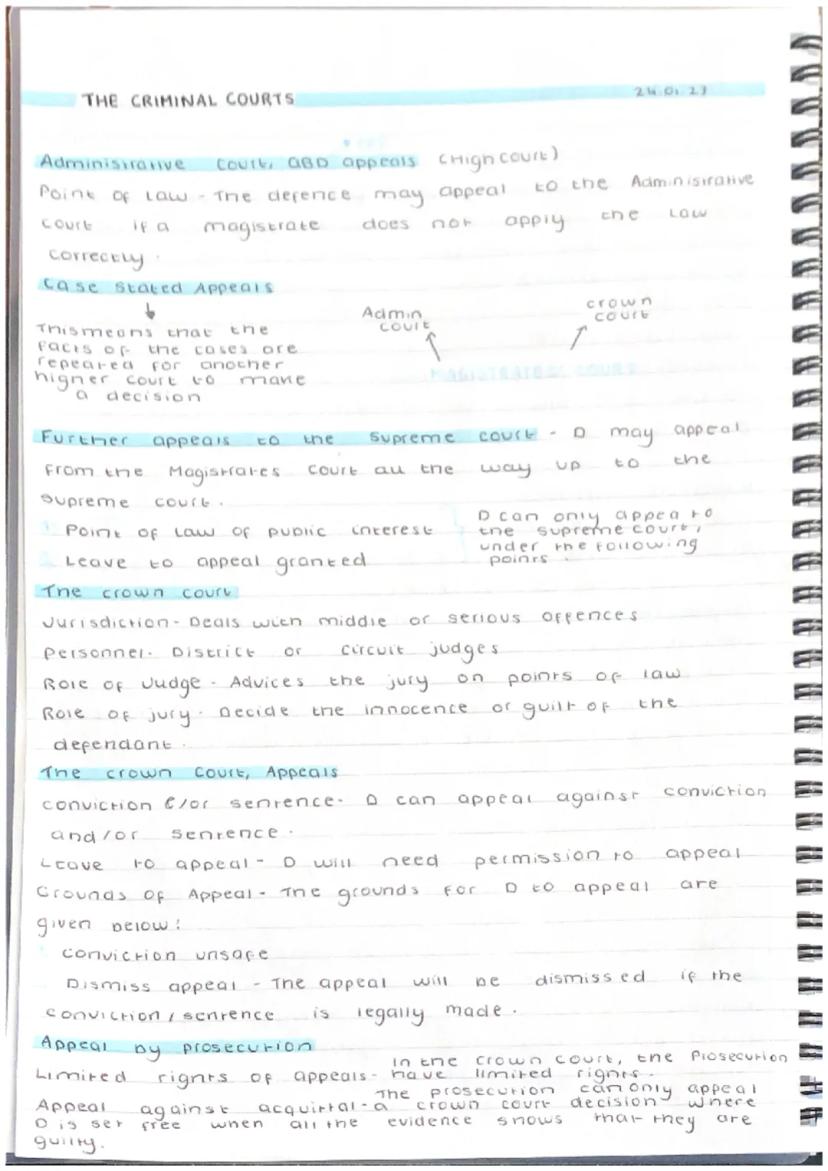 THE CRIMINAL COURTS
24.01.23
Administrative Court, QBD appeals (High Court)
Point of Law - The defence may appeal to the Administrative
court if a magistrate does not apply the Law
correctly.
Case Stated Appeals
This means that the
facts of the cases are
repeared for another
higher court to make
a decision
Admin
court
crown
court
MAGISTRATES COURT
Further appeals to the Supreme court - D may appeal
from the Magistrates Court all the way up to the
Supreme court.
1 Point of Law of public interest
2 Leave to appeal granted
D can only appea to
the supreme court,
under the following
points.
The crown court
Jurisdiction - Deals with middle or serious offences
Personnel - District or circuit judges
Role of Judge - Advices the jury on points of law
Role of jury - Decide the innocence or guilt of the
dependant.
The crown Court, Appeals
conviction &/or sentence - D can appeal against conviction
and/or sentence.
Leave to appeal - D will need permission to appeal
Grounds of Appeal - The grounds for D to appeal are
given below:
conviction unsafe
Dismiss appeal - The appeal will be dismissed if the
conviction/sentence is legally made.
Appeal by prosecution
Limited rights of appeals - In the crown court, the Prosecution
have limited rights.
Appeal against acquittal - The prosecution can only appeal
a crown court decision where
D is set free when all the evidence shows that they are
guilty.